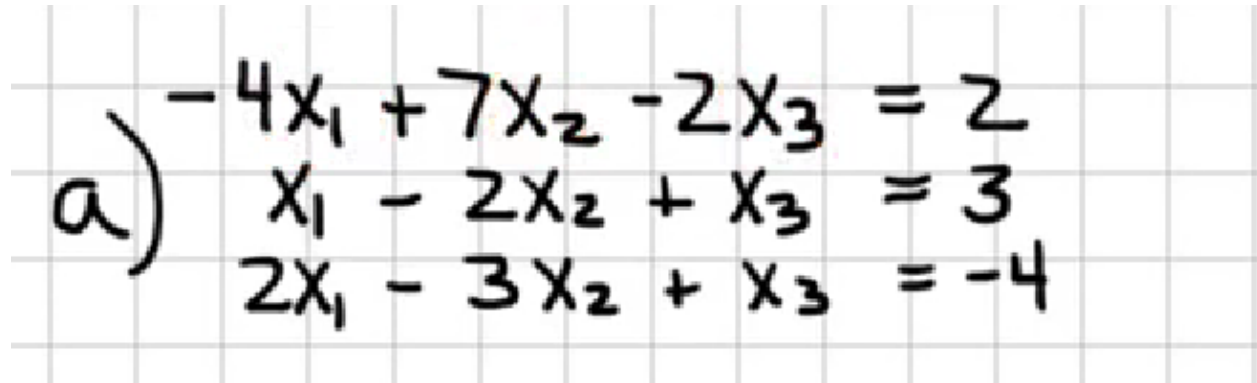 -4x₁ + 7x₂ - 2x₃ = 2
a) x₁ - 2x₂ + x₃ = 3
2x₁ - 3x₂ + x₃ = -4